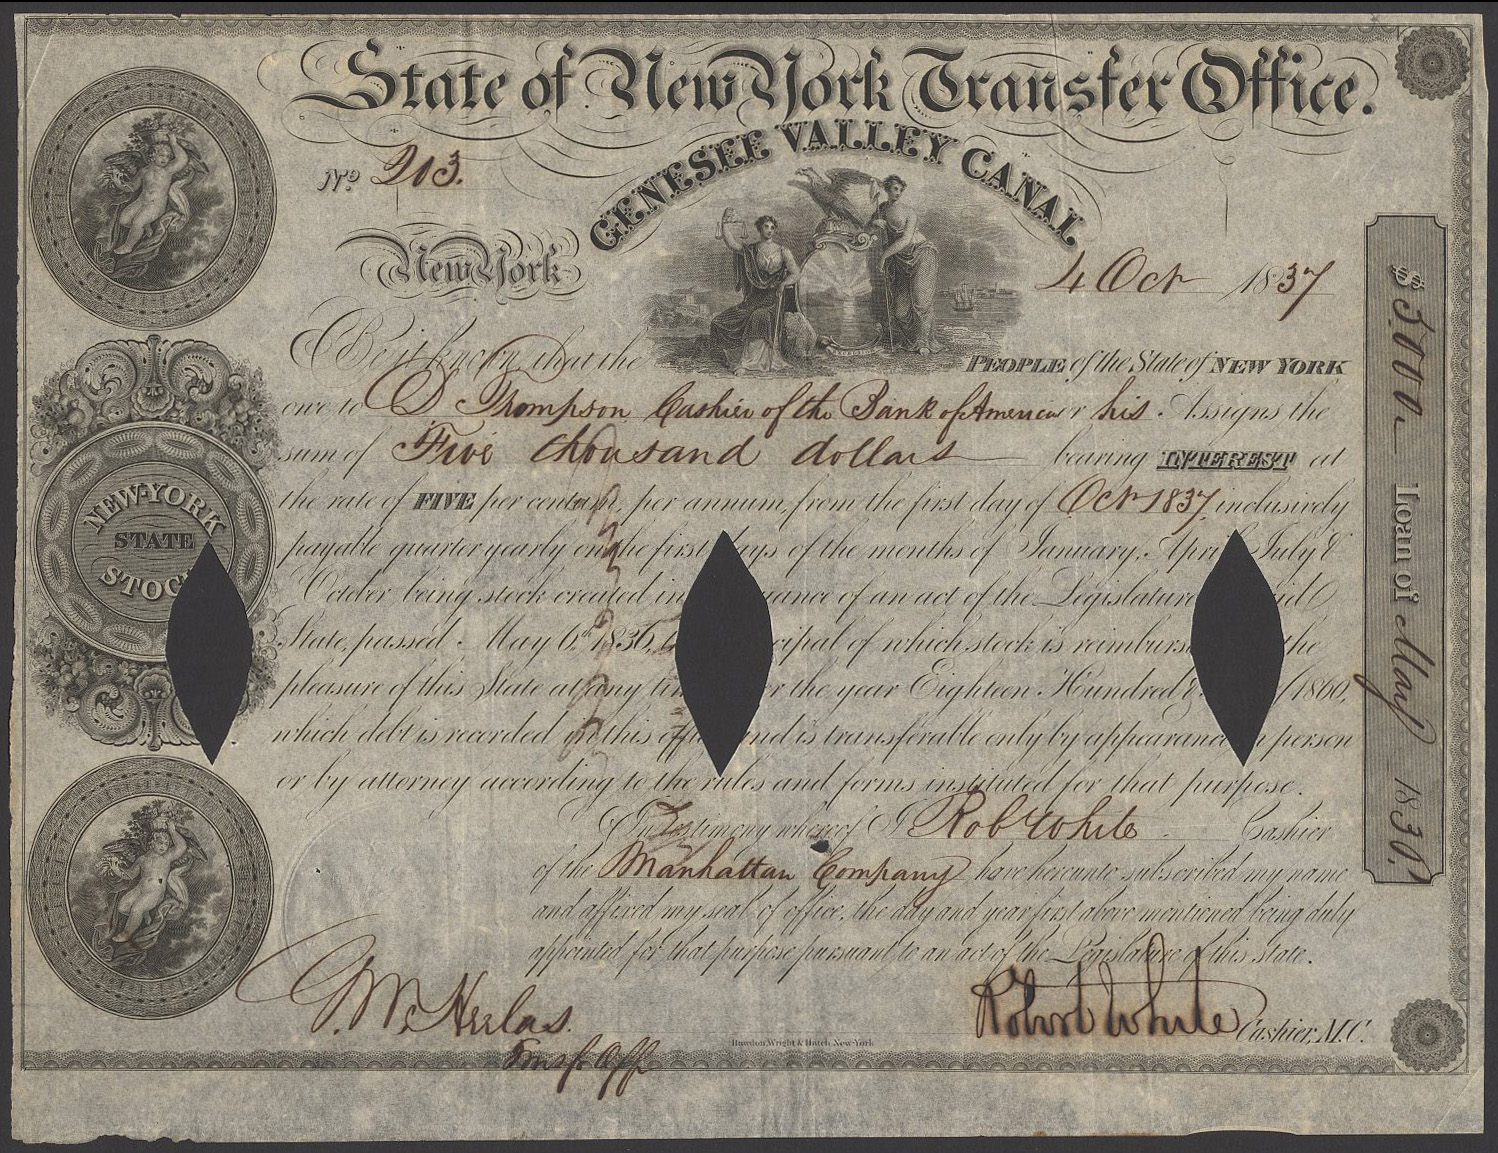 State of New York Transfer Office.
GENESEE VALLEY CANAL
No. 203.
New York 4 Oct 1837
Be it known that the PEOPLE of the State of NEW YORK
owe to D Thompson Cashier of the Bank of America or his Assigns the
sum of Five thousand dollars bearing INTEREST at
the rate of FIVE per centum, per annum, from the first day of Oct 1837 inclusively
payable quarter yearly on the first days of the months of January, April July &
October being stock created in of an act of the Legislature
State, passed May 6th 1836, of which stock is the
pleasure of this State at any the year Eighteen Hundred & 1860,
which debt is recorded in this and is transferable only by appearance in person
or by attorney according to the rules and forms instituted for that purpose.
In Testimony whereof I Rob White Cashier
of the Manhattan Company have hereunto subscribed my name
and affixed my seal of office, the day and year first above mentioned being duly
appointed for that purpose pursuant to an act of the Legislature of this state.
Robert White Cashier, M.C.
Transf Off
Rawdon, Wright & Hatch New-York
NEW-YORK
STATE
STOC
$5000 Loan of May 1836.